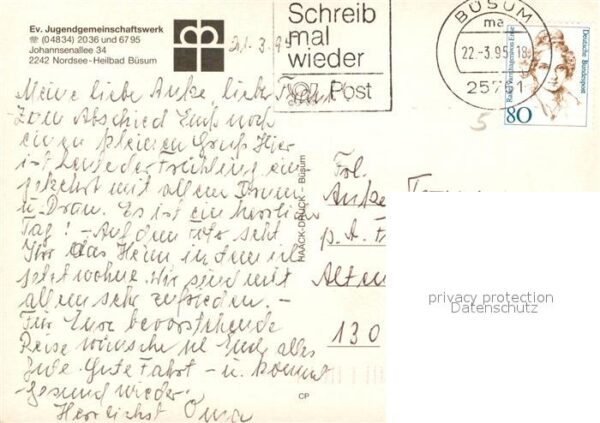 Ev. Jugendgemeinschaftswerk
☎ (04834) 2036 und 6795
Johannsenallee 34
2242 Nordsee-Heilbad Büsum
21.3.95
Schreib
mal
wieder
Post
BÜSUM
ma
22.-3.95-18
25761
Deutsche Bundespost
Rahel Varnhagen von Ense
80
5
Meine liebe Anke, lieber Frank!
Zum Abschied Euch noch
einen kleinen Gruß. Hier
ist heute der Frühling ein-
gekehrt mit allem Drum
u. Dran. Es ist ein herrlicher
Tag! - Auf dem Foto seht
Ihr das Heim in dem ich
jetzt wohne. Wir sind mit
allem sehr zufrieden. -
Für Eure bevorstehende
Reise wünsche ich Euch alles
Gute. Gute Fahrt - u. kommt
gesund wieder.
Herzlichst Oma
HAACK-DRUCK - Büsum
Frl.
Anke
p. A.
Alten
130
CP
privacy protection
Datenschutz